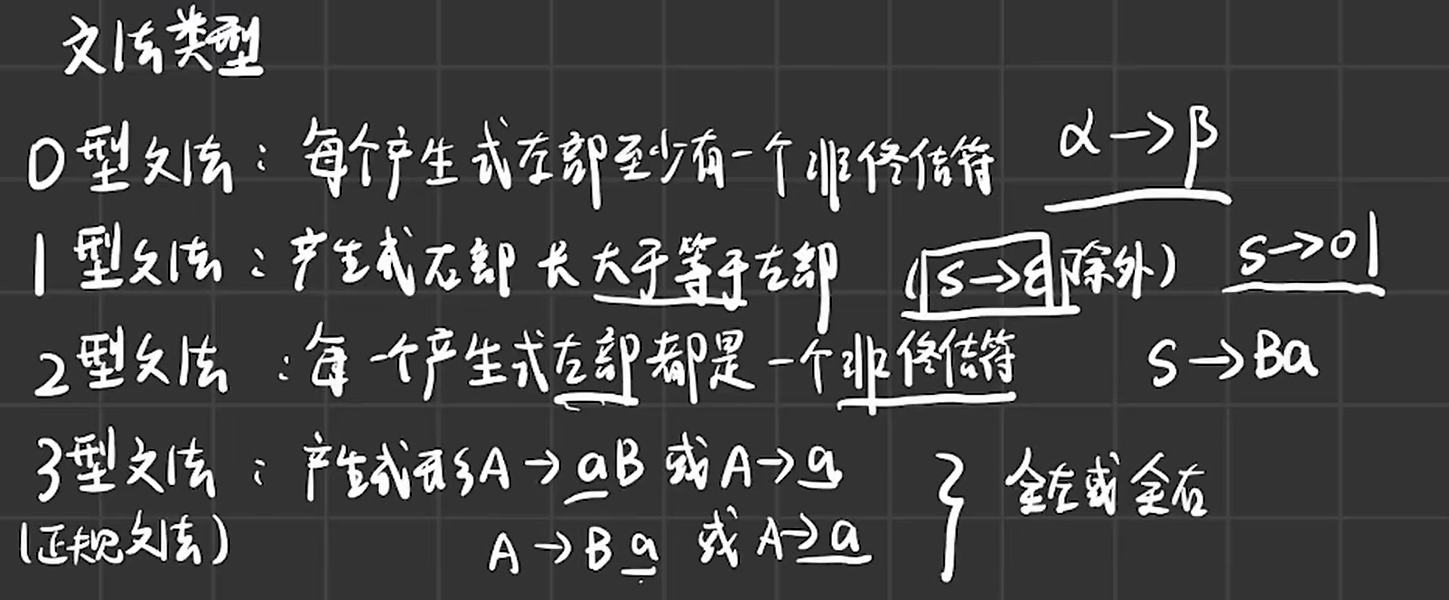 文法类型
0型文法：每个产生式左部至少有一个非终结符 α→β
1型文法：产生式右部长大于等于左部 (S→ε除外) S→01
2型文法：每一个产生式左部都是一个非终结符 S→Ba
3型文法：产生式形A→aB或A→a } 全左或全右
(正规文法) A→Ba 或A→a